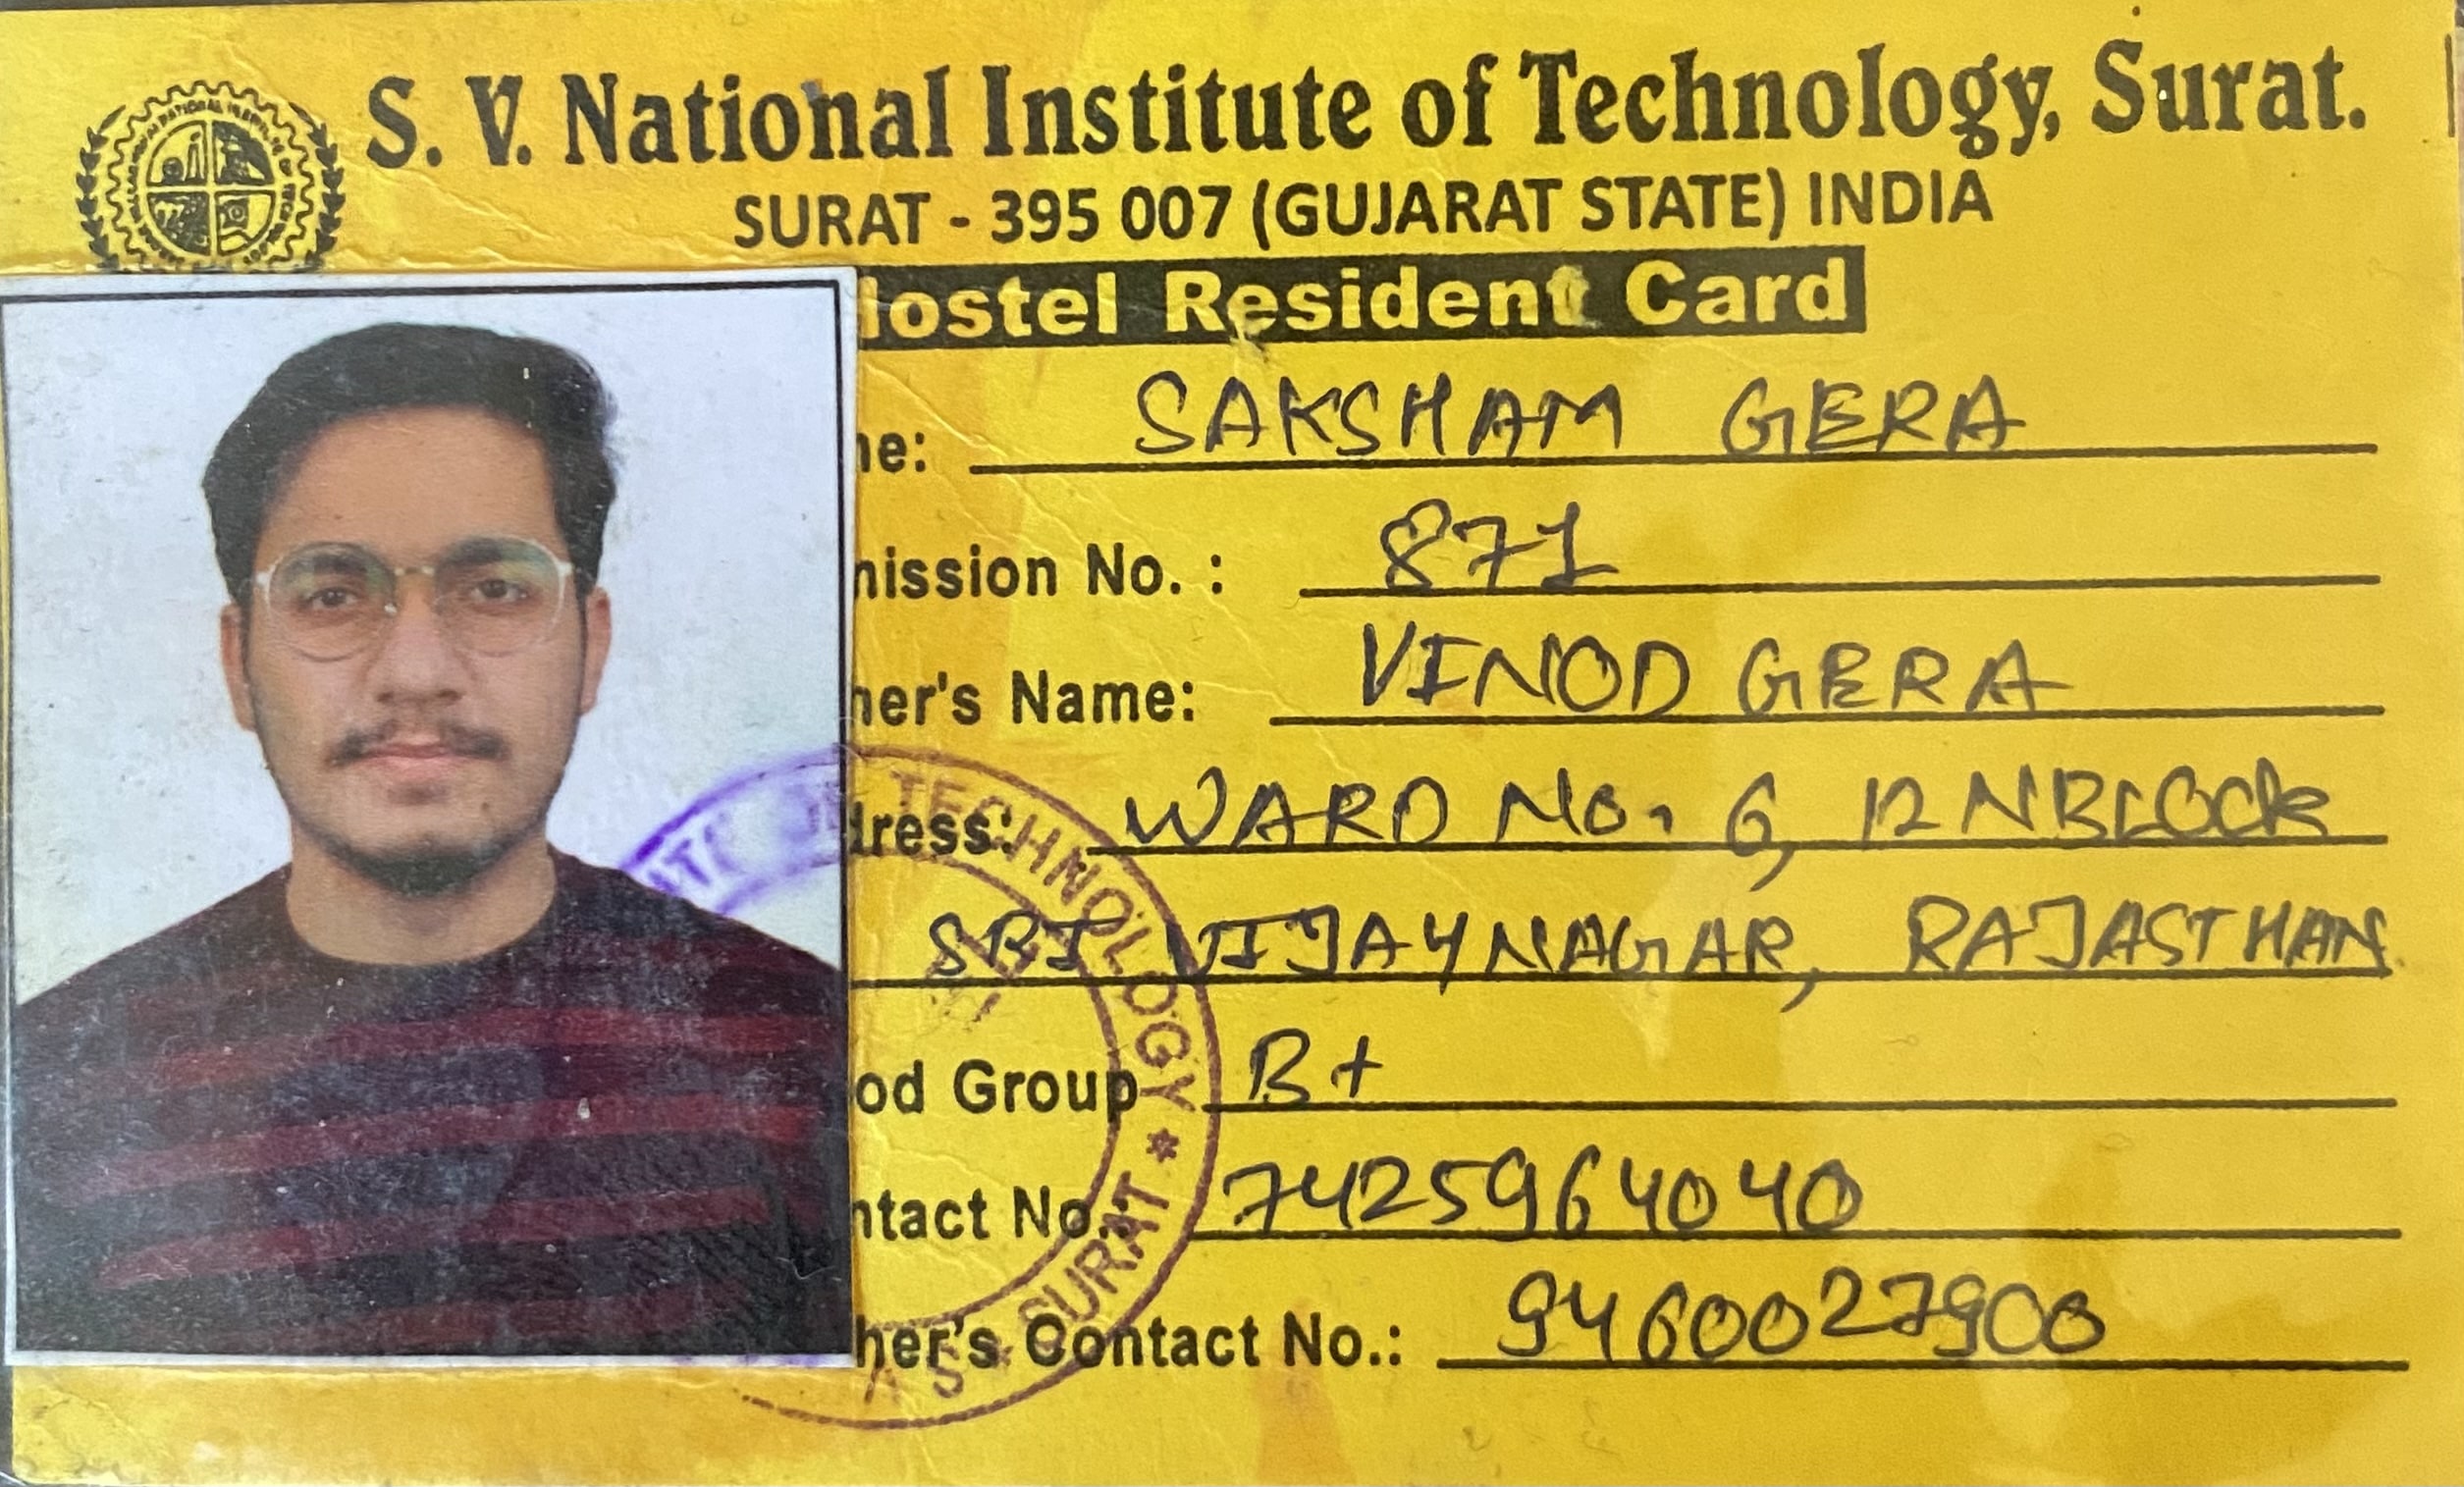 S. V. National Institute of Technology, Surat.
SURAT - 395 007 (GUJARAT STATE) INDIA
Hostel Resident Card
ne: SAKSHAM GERA
mission No. : 871
her's Name: VINOD GERA
dress: WARD No. 6, 12 N BLOCK
SRI VIJAYNAGAR, RAJASTHAN.
od Group B+
ntact No. 7425964040
her's Contact No.: 9460027900
TECHNOLOGY * SURAT *